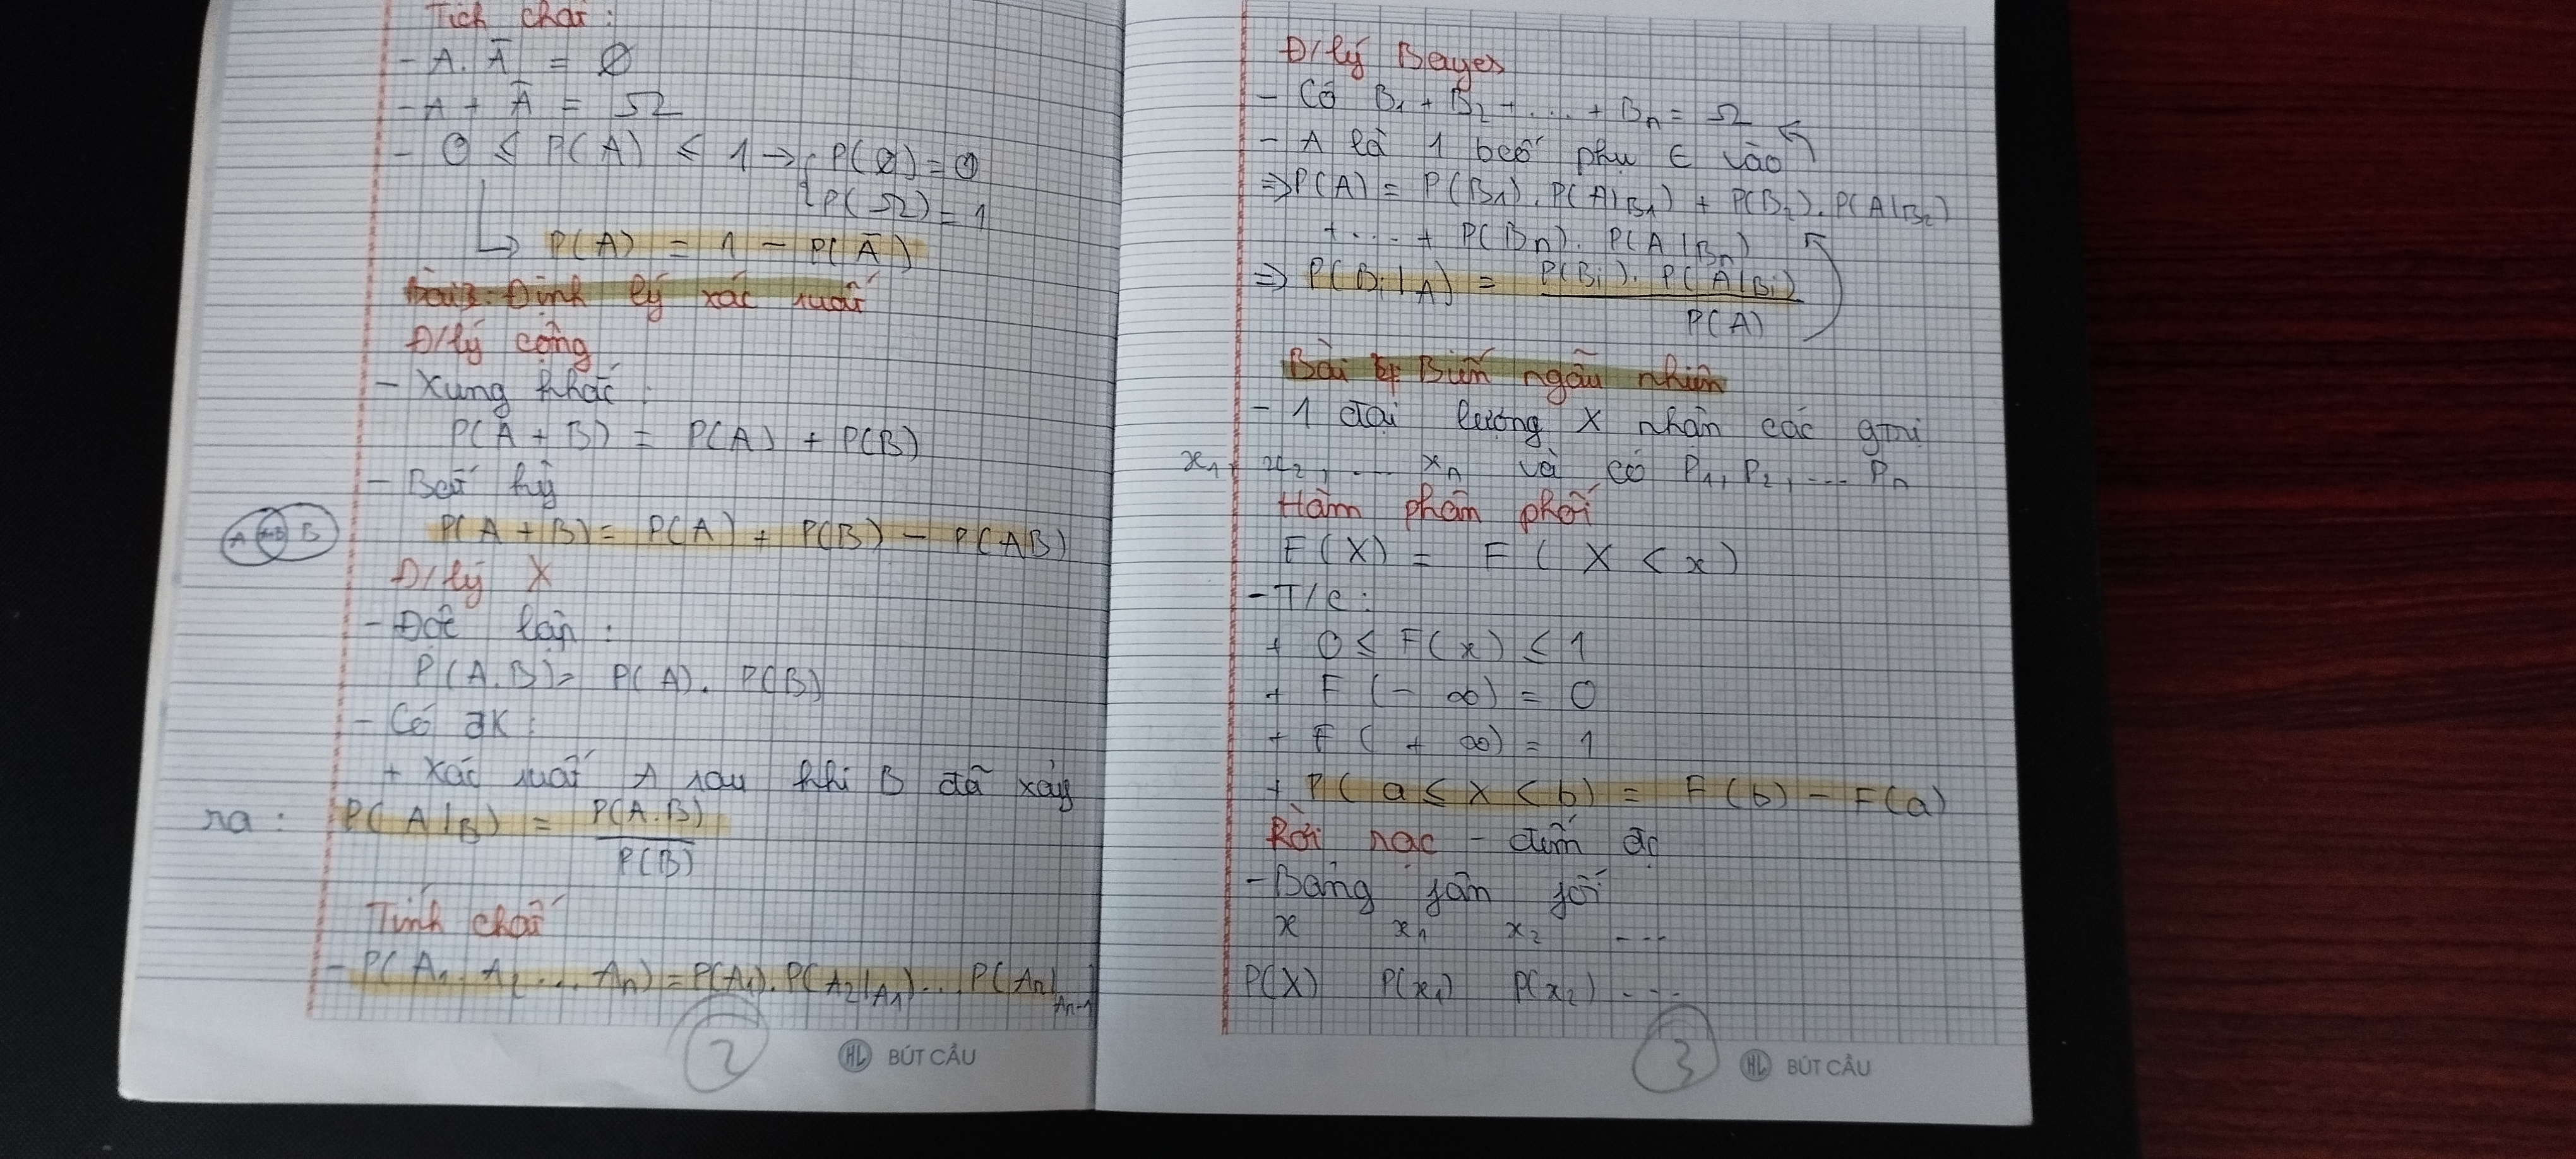 Tích chất:
- A. Ā = Ø
- A + Ā = Ω
- 0 ≤ P(A) ≤ 1 → { P(Ø) = 0
P(Ω) = 1
↳ P(A) = 1 - P(Ā)
Bài 3: Định lý xác suất
Đ/lý cộng
- Xung khắc:
P(A + B) = P(A) + P(B)
- Bất kỳ
A AB B
P(A + B) = P(A) + P(B) - P(AB)
Đ/lý X
- Độc lập:
P(A.B) = P(A). P(B)
- Có đk:
+ Xác suất A sau khi B đã xảy
ra: P(A|B) = P(A.B)
P(B)
Tính chất
- P(A1. A2 ... An) = P(A1). P(A2|A1) ... P(An|An-1
2
HL BÚT CẦU
Đ/lý Bayes
- Có B1 + B2 + ... + Bn = Ω
- A là 1 bcố phụ ∈ vào
⇒ P(A) = P(B1). P(A|B1) + P(B2). P(A|B2)
+ ... + P(Bn). P(A|Bn)
⇒ P(Bi|A) = P(Bi). P(A|Bi)
P(A)
Bài 4 Biến ngẫu nhiên
- 1 đại lượng X nhận các gtrị
x1, x2, ... xn và có P1, P2, ... Pn
Hàm phân phối
F(X) = F(X < x)
- T/c:
+ 0 ≤ F(x) ≤ 1
+ F(- ∞) = 0
+ F(+ ∞) = 1
+ P(a ≤ X < b) = F(b) - F(a)
Rời rạc - đếm đc
- Bảng fân fối
x x1 x2 ...
P(X) P(x1) P(x2) ...
3
HL BÚT CẦU